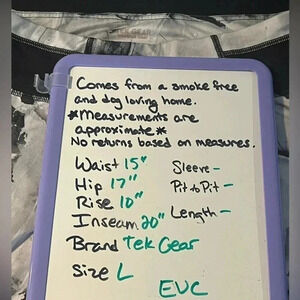 TEK GEAR
Comes from a smoke free
and dog loving home.
*Measurements are
approximate*
No returns based on measures.
Waist 15"
Hip 17"
Rise 10"
Inseam 20"
Brand Tek Gear
Size L
Sleeve -
Pit to Pit -
Length -
EUC